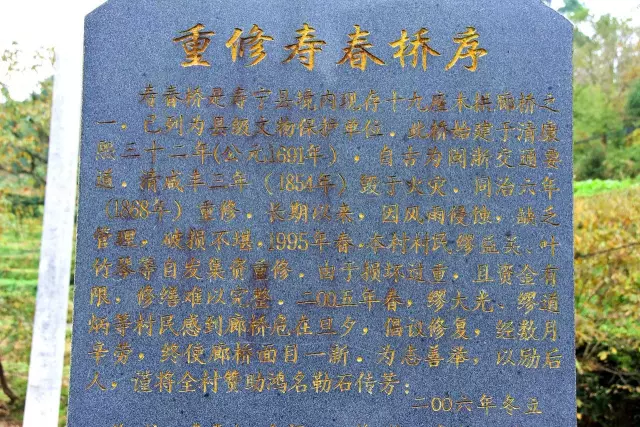 重修寿春桥序
寿春桥是寿宁县境内现存十九座木拱廊桥之
一，已列为县级文物保护单位。此桥始建于清康
熙三十二年(公元1691年)，自古为闽浙交通要
道。清咸丰二年（1854年）毁于火灾，同治六年
（1868年）重修。长期以来，因风雨侵蚀，缺乏
管理，破损不堪。1995年春，本村村民缪益、叶
竹等自发集资重修。由于损坏过重，且资金有
限，修缮难以完整。二00五年春，缪大光、缪道
炳等村民感到廊桥危在旦夕，倡议修复，经数月
辛劳，终使廊桥面目一新。为志喜举，以励后
人，谨将全村赞助鸿名勒石传芳：
二00六年冬立